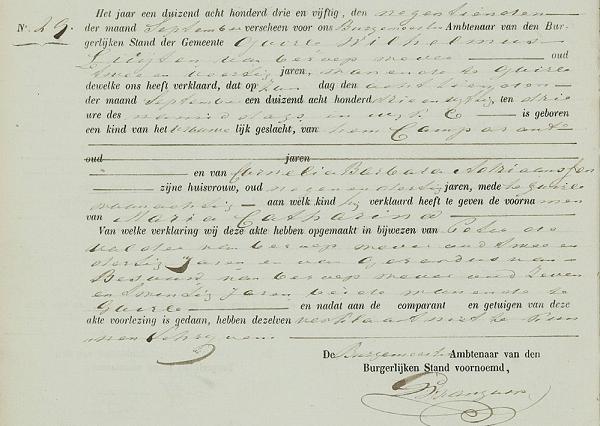 Het jaar een duizend acht honderd drie en vijftig, den negentienden
No. 29. der maand September verscheen voor ons Burgemeester Ambtenaar van den Bur-
gerlijken Stand der Gemeente Goirle Wilhelmus
van beroep wever oud
twee en veertig jaren, wonende te Goirle
dewelke ons heeft verklaard, dat op den dag den achttienden
der maand September een duizend acht honderd drie en vijftig ten drie
ure des namiddags in wijk C is geboren
een kind van het vrouwelijk geslacht, van hem Comparant
oud jaren
en van Cornelia Barbara Adriaanssen
zijne huisvrouw, oud negen en dertig jaren, mede te Goirle
woonachtig aan welk kind hij verklaard heeft te geven de voornamen
van Maria Catharina
Van welke verklaring wij deze akte hebben opgemaakt in bijwezen van Peter de
van beroep wever oud twee en
dertig Jaren en van Gerardus van
van beroep wever oud zeven
en twintig jaren beide wonende te
Goirle en nadat aan de comparant en getuigen van deze
akte voorlezing is gedaan, hebben dezelven verklaard niet te kun
nen schryven.
De Burgemeester Ambtenaar van den
Burgerlijken Stand voornoemd,